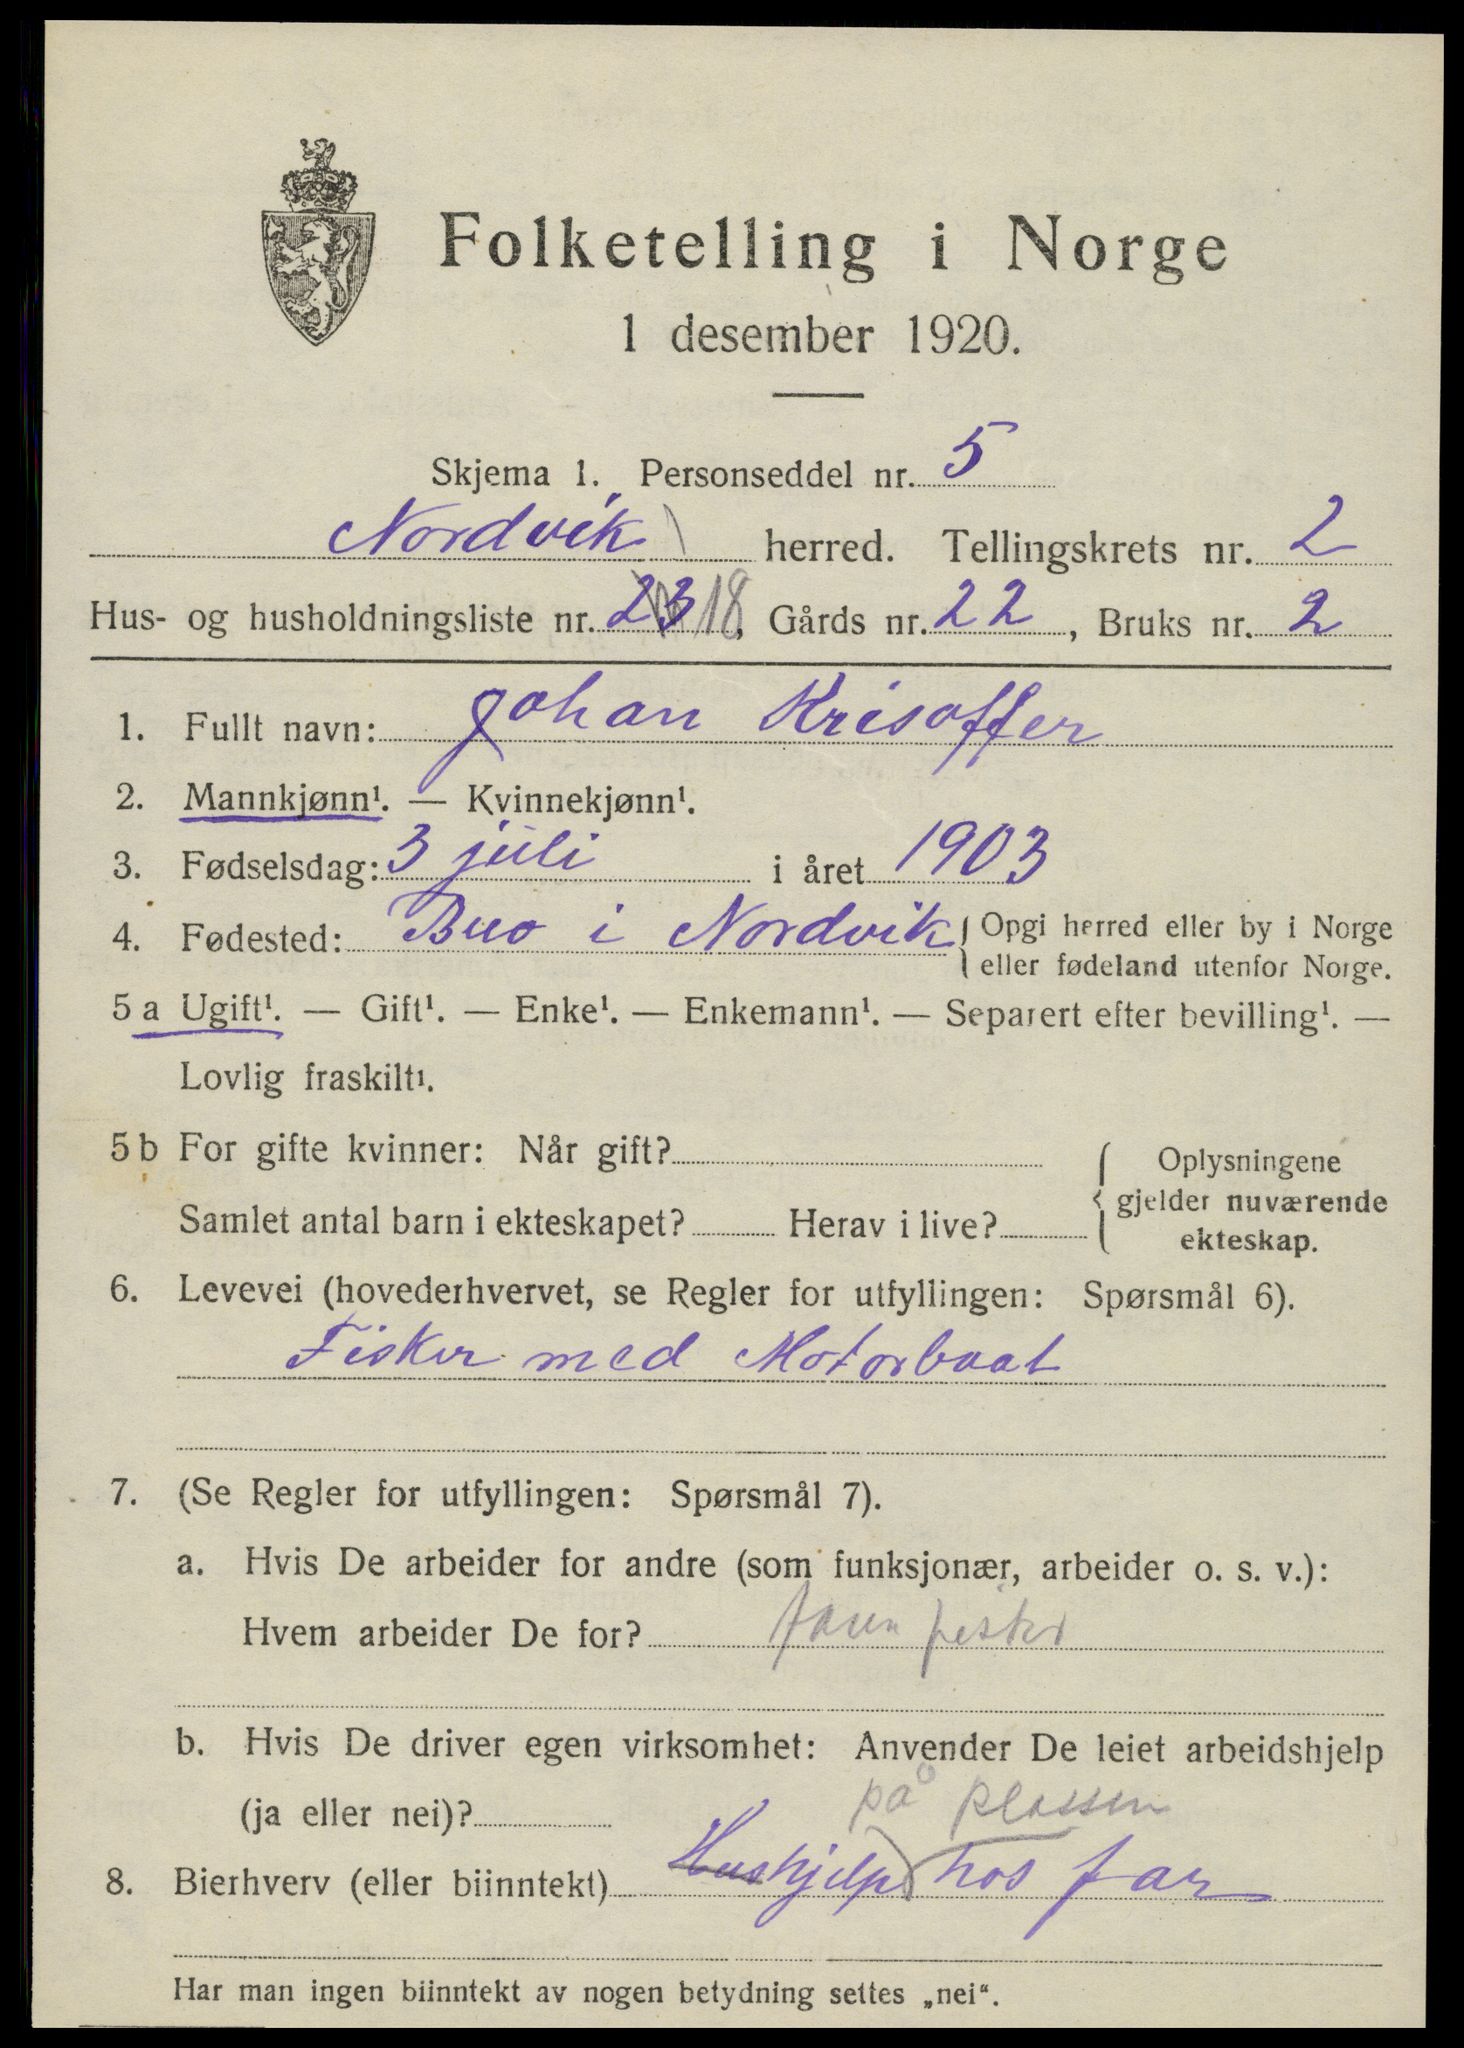 Folketelling i Norge
1 desember 1920.
Skjema 1. Personseddel nr. 5
Nordvik herred. Tellingskrets nr. 2
Hus- og husholdningsliste nr. 23 18, Gårds nr. 22, Bruks nr. 2
1. Fullt navn: Johan Krisoffer
2. Mannkjønn¹. — Kvinnekjønn¹.
3. Fødselsdag: 3 juli i året 1903
4. Fødested: Buo i Nordvik { Opgi herred eller by i Norge
eller fødeland utenfor Norge.
5 a Ugift¹. — Gift¹. — Enke¹. — Enkemann¹. — Separert efter bevilling¹. —
Lovlig fraskilt¹.
5 b For gifte kvinner: Når gift?
Samlet antal barn i ekteskapet? Herav i live?
{ Oplysningene
gjelder nuværende
ekteskap.
6. Levevei (hovederhvervet, se Regler for utfyllingen: Spørsmål 6).
Fisker med Motorbaat
7. (Se Regler for utfyllingen: Spørsmål 7).
a. Hvis De arbeider for andre (som funksjonær, arbeider o. s. v.):
Hvem arbeider De for? faren fisker
b. Hvis De driver egen virksomhet: Anvender De leiet arbeidshjelp
(ja eller nei)?
på plassen
8. Bierhverv (eller biinntekt) Hushjelp hos far
Har man ingen biinntekt av nogen betydning settes „nei“.